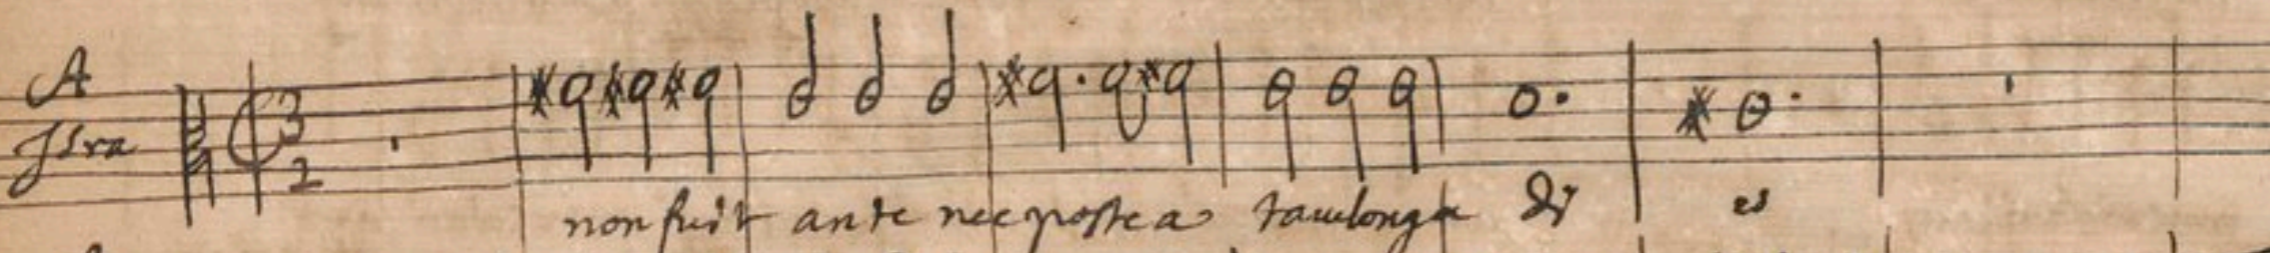 A
Jsra
3
2
non fuit ante nec postea tam longa di es